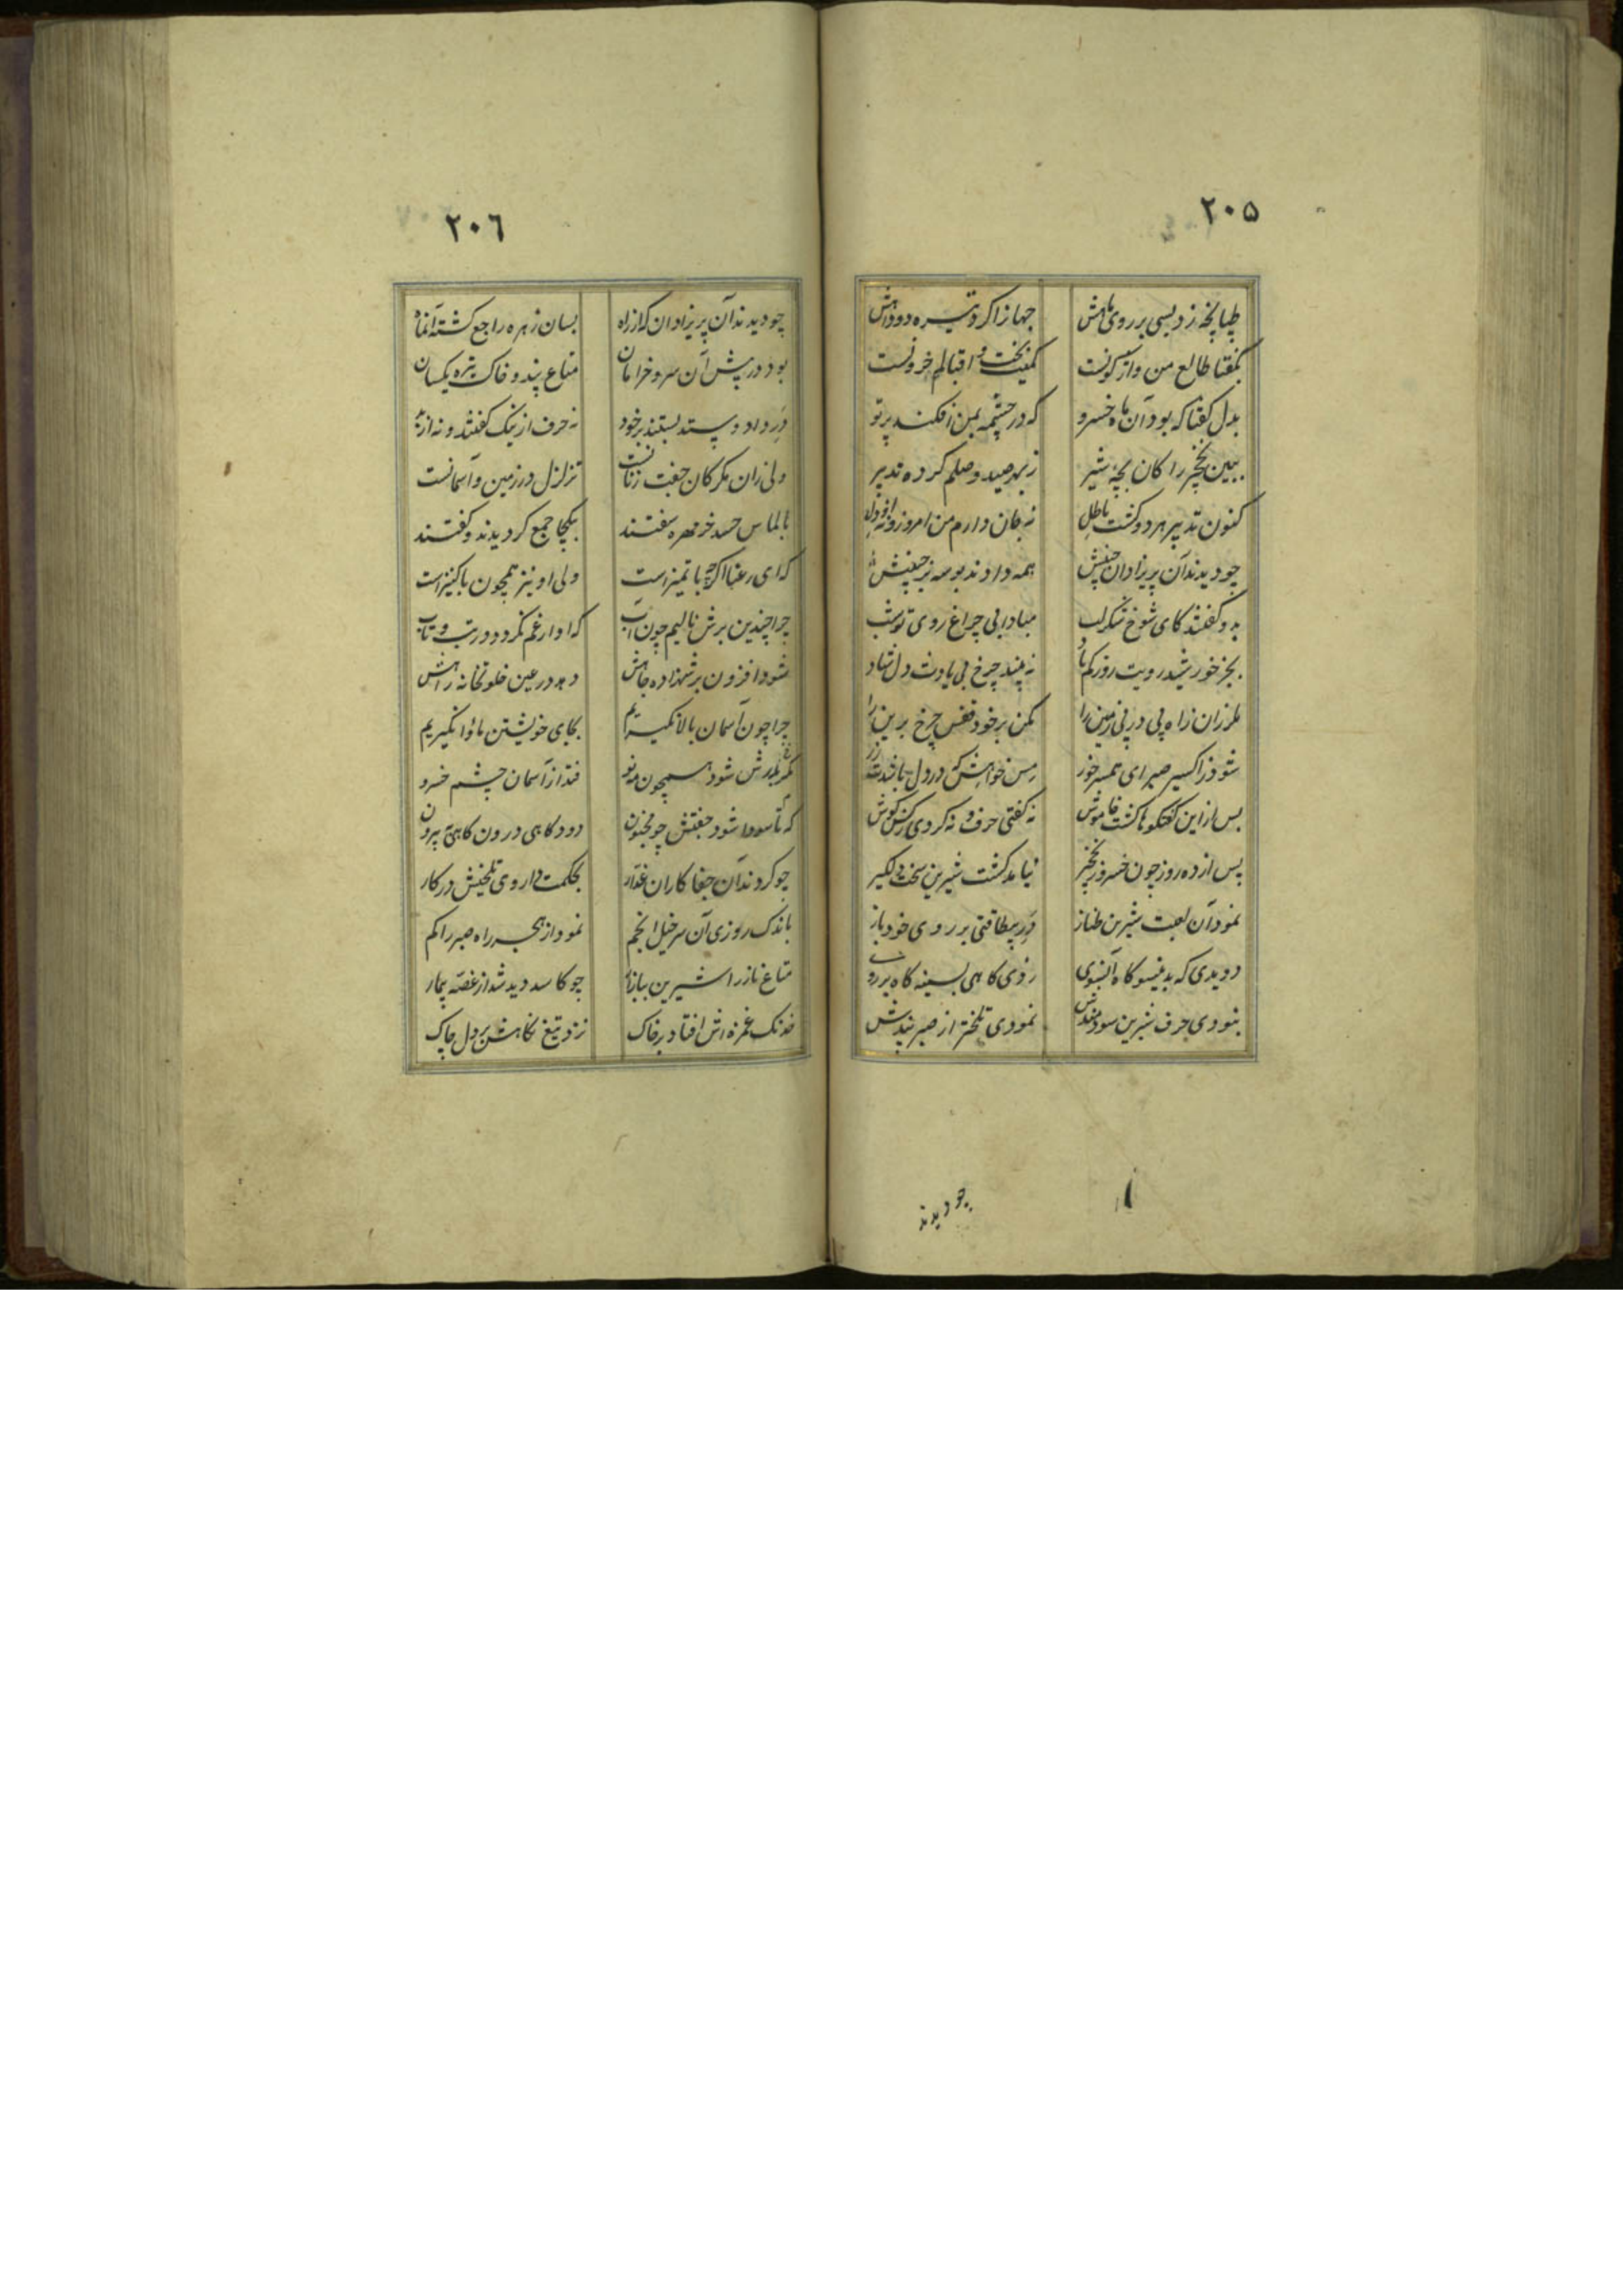 ۲۰۵
طپانچه زد بسی بر روی ماهش جهانرا کرد تیره دود آهش
بگفتا طالع من واژگونست کمیت بخت و اقبالم حرونست
بدل گفتا که بود آن ماه خسرو که در چشمه بمن افکند پرتو
ببین نخچیر را کان بچه شیر ز بهر صید وصلم کرده تدبیر
کنون تدبیر هر دو گشت باطل نه جان دارم من امروز و نه دل
چو دیدند آن پریزادان همه دادند بوسه بر
بدو گفتند کای شوخ شکرلب مبادا بی چراغ روی تو شب
بجز خورشید رویت روز کم باد نه بیند چرخ بی یادت دل شاد
ملرزان زاه پی در پی زمین را مکن بر خود قفس چرخ برین را
شود ز اکسیر صبر ای همسر خور مس خواهش که در دل باشدت زر
پس از این گفتگوها گشت خاموش نه گفتی حرف و نه کردی ز کس گوش
پس از ده روز چون خسرو ز نخچیر نیامد گشت شیرین سخت دلگیر
نمود آن لعبت شیرین طناز در بیطاقتی بر روی خود باز
دویدی که بدینسو گاه آنسوی زدی گاهی بسینه گاه بر روی
نبودی حرف شیرین سودمندش نمودی تلختر از صبر پندش
چو دیدند
۲۰۶
چو دیدند آن پریزادان که از راه بسان زهره راجع گشته آنماه
بود در پیش آن سرو خرامان متاع پند و خاک تیره یکسان
در داد و ستد بستند بر خود نه حرف از نیک گفتند و نه از بد
ولی زان مکر کان جفت زنانست تزلزل در زمین و آسمانست
بالماس حسد خرمهره سفتند بیکجا جمع گردیدند و گفتند
که ای رعنا اگرچه با تمیز است ولی او نیز همچون ما کنیز است
چرا چندین برش نالیم چون آب که او از غم نگردد در تب و تاب
شود افزون بر شهزاده جاهش دهد در عین خلوتخانه راهش
چرا چون آسمان بالا نگیریم بجای خویشتن ماوا نگیریم
مگر بدرش شود همچون مه نو فتد از آسمان چشم خسرو
که تا سودا شود جفتش چو مجنون دود گاهی درون گاهی به بیرون
چو کردند آن جفاکاران غدار بحکمت داروی تلخیش در کار
باندک روزی آن سرخیل انجم نمود از هجر راه صبر را گم
متاع ناز را شیرین ببازار چو کاسد دید شد از غصه بیمار
خدنگ غمزه اش افتاد بر خاک نزد تیغ نگاهش بر دل چاک